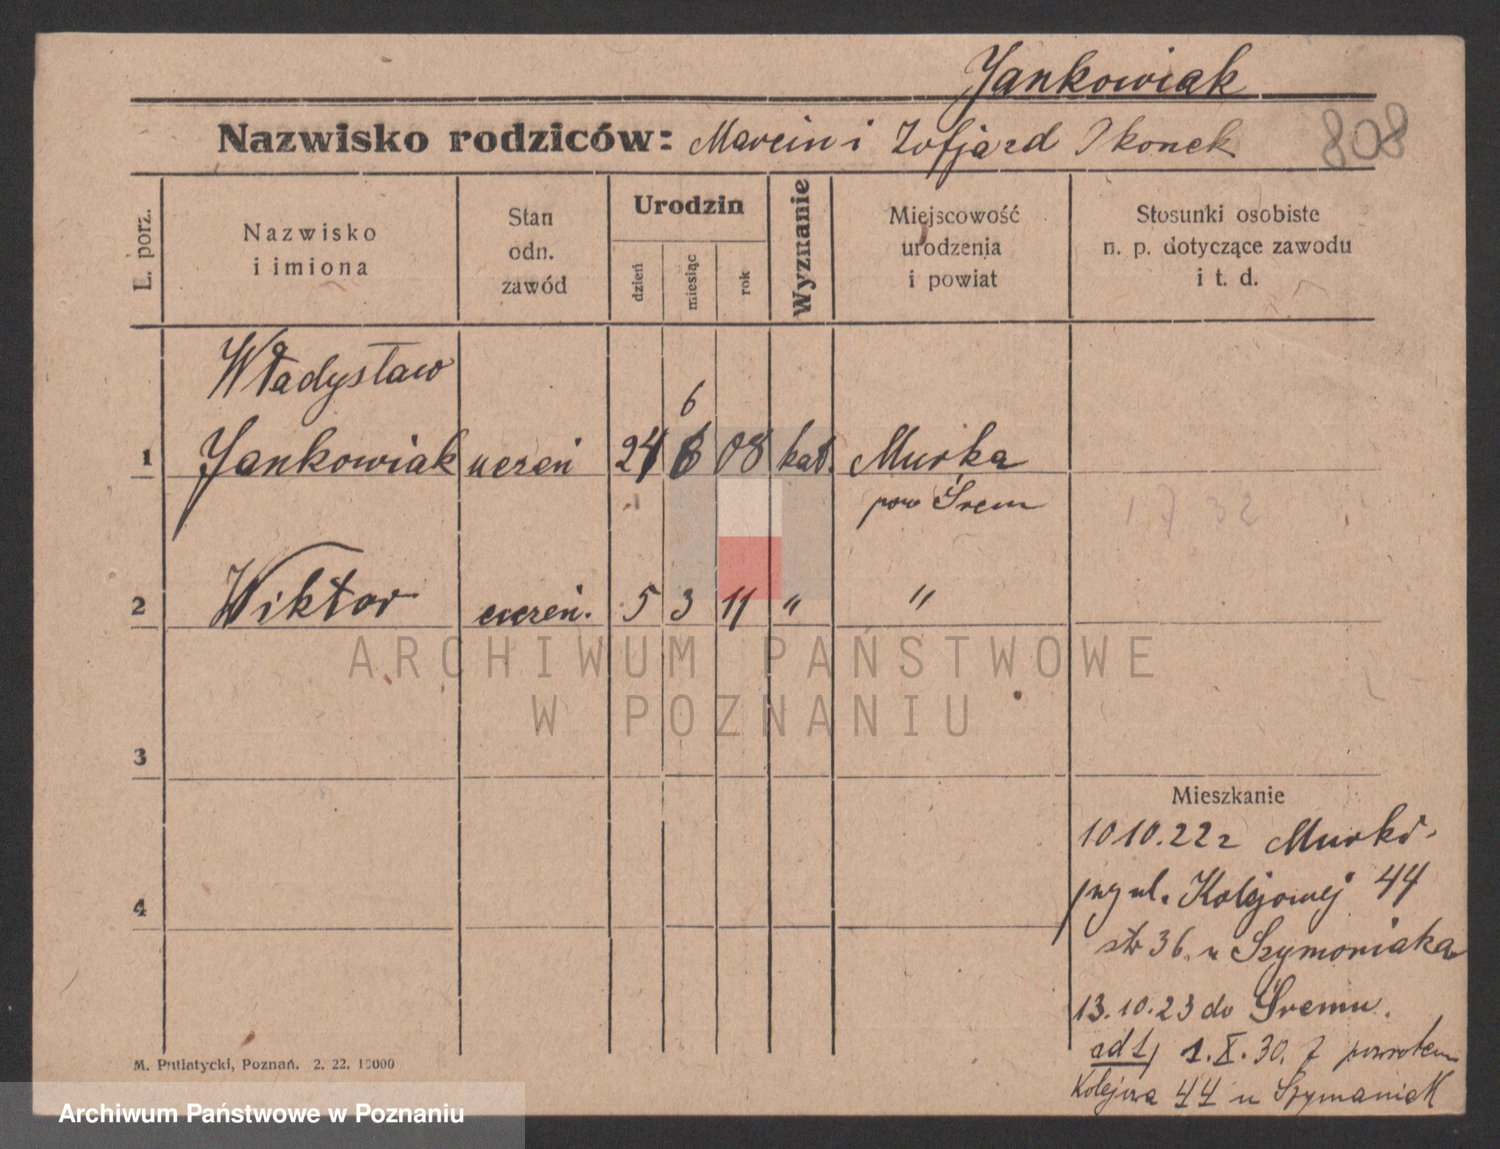 Jankowiak
Nazwisko rodziców: Marcin i Zofja zd Skonek
808
L. porz.
Nazwisko
i imiona
Stan
odn.
zawód
Urodzin
dzień
miesiąc
rok
Wyznanie
Miejscowość
urodzenia
i powiat
Stosunki osobiste
n. p. dotyczące zawodu
i t. d.
Władysław
6
1 Jankowiak uczeń 24 6 08 kat. Murka
pow Śrem
1732
2 Wiktor uczeń. 5 3 11 " "
ARCHIWUM PAŃSTWOWE
W POZNANIU
3
Mieszkanie
10 10.22 z Murki
4
przy ul. Kolejowej 44
str 36 u Szymoniaka
13.10.23 do Śremu.
ad 1, 1.X.30. z powrotem
Kolejowa 44 u Szymaniak
M. Putiatycki, Poznań. 2. 22. 10000
Archiwum Państwowe w Poznaniu